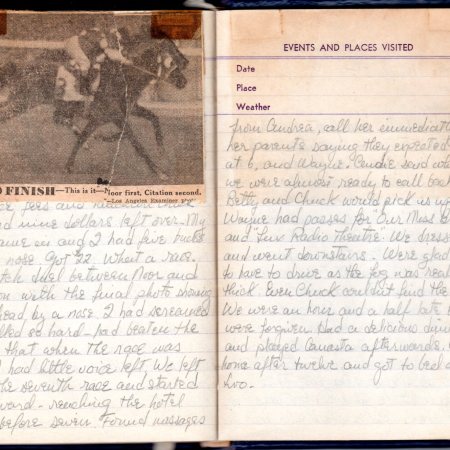 O FINISH—This is it—Noor first, Citation second.
—Los Angeles Examiner
fees and
ed nine dollars left over. My
came on and I had five bucks
nose. Got $22. What a race.
tch duel between Noor and
on with the final photo showing
head by a nose. I had screamed
lled so hard - had beaten the
that when the race was
I had little voice left. We left
the seventh race and started
ward - reaching the hotel
before seven. Found messages
EVENTS AND PLACES VISITED
Date
Place
Weather
from Andrea, call her immediat
her parents saying they expected
at 6, and Wayne. Candie said
we were almost ready to call
Betty and Chuck would pick us up
Wayne had passes for "Our Miss B
and "Lux Radio Theatre". We dress
and went downstairs. Were glad
to have to drive as the fog was real
thick. Even Chuck couldn't find the
We were an hour and a half late
were forgiven. Had a delicious din
and played Canasta afterwards.
home after twelve and got to bed a
two.